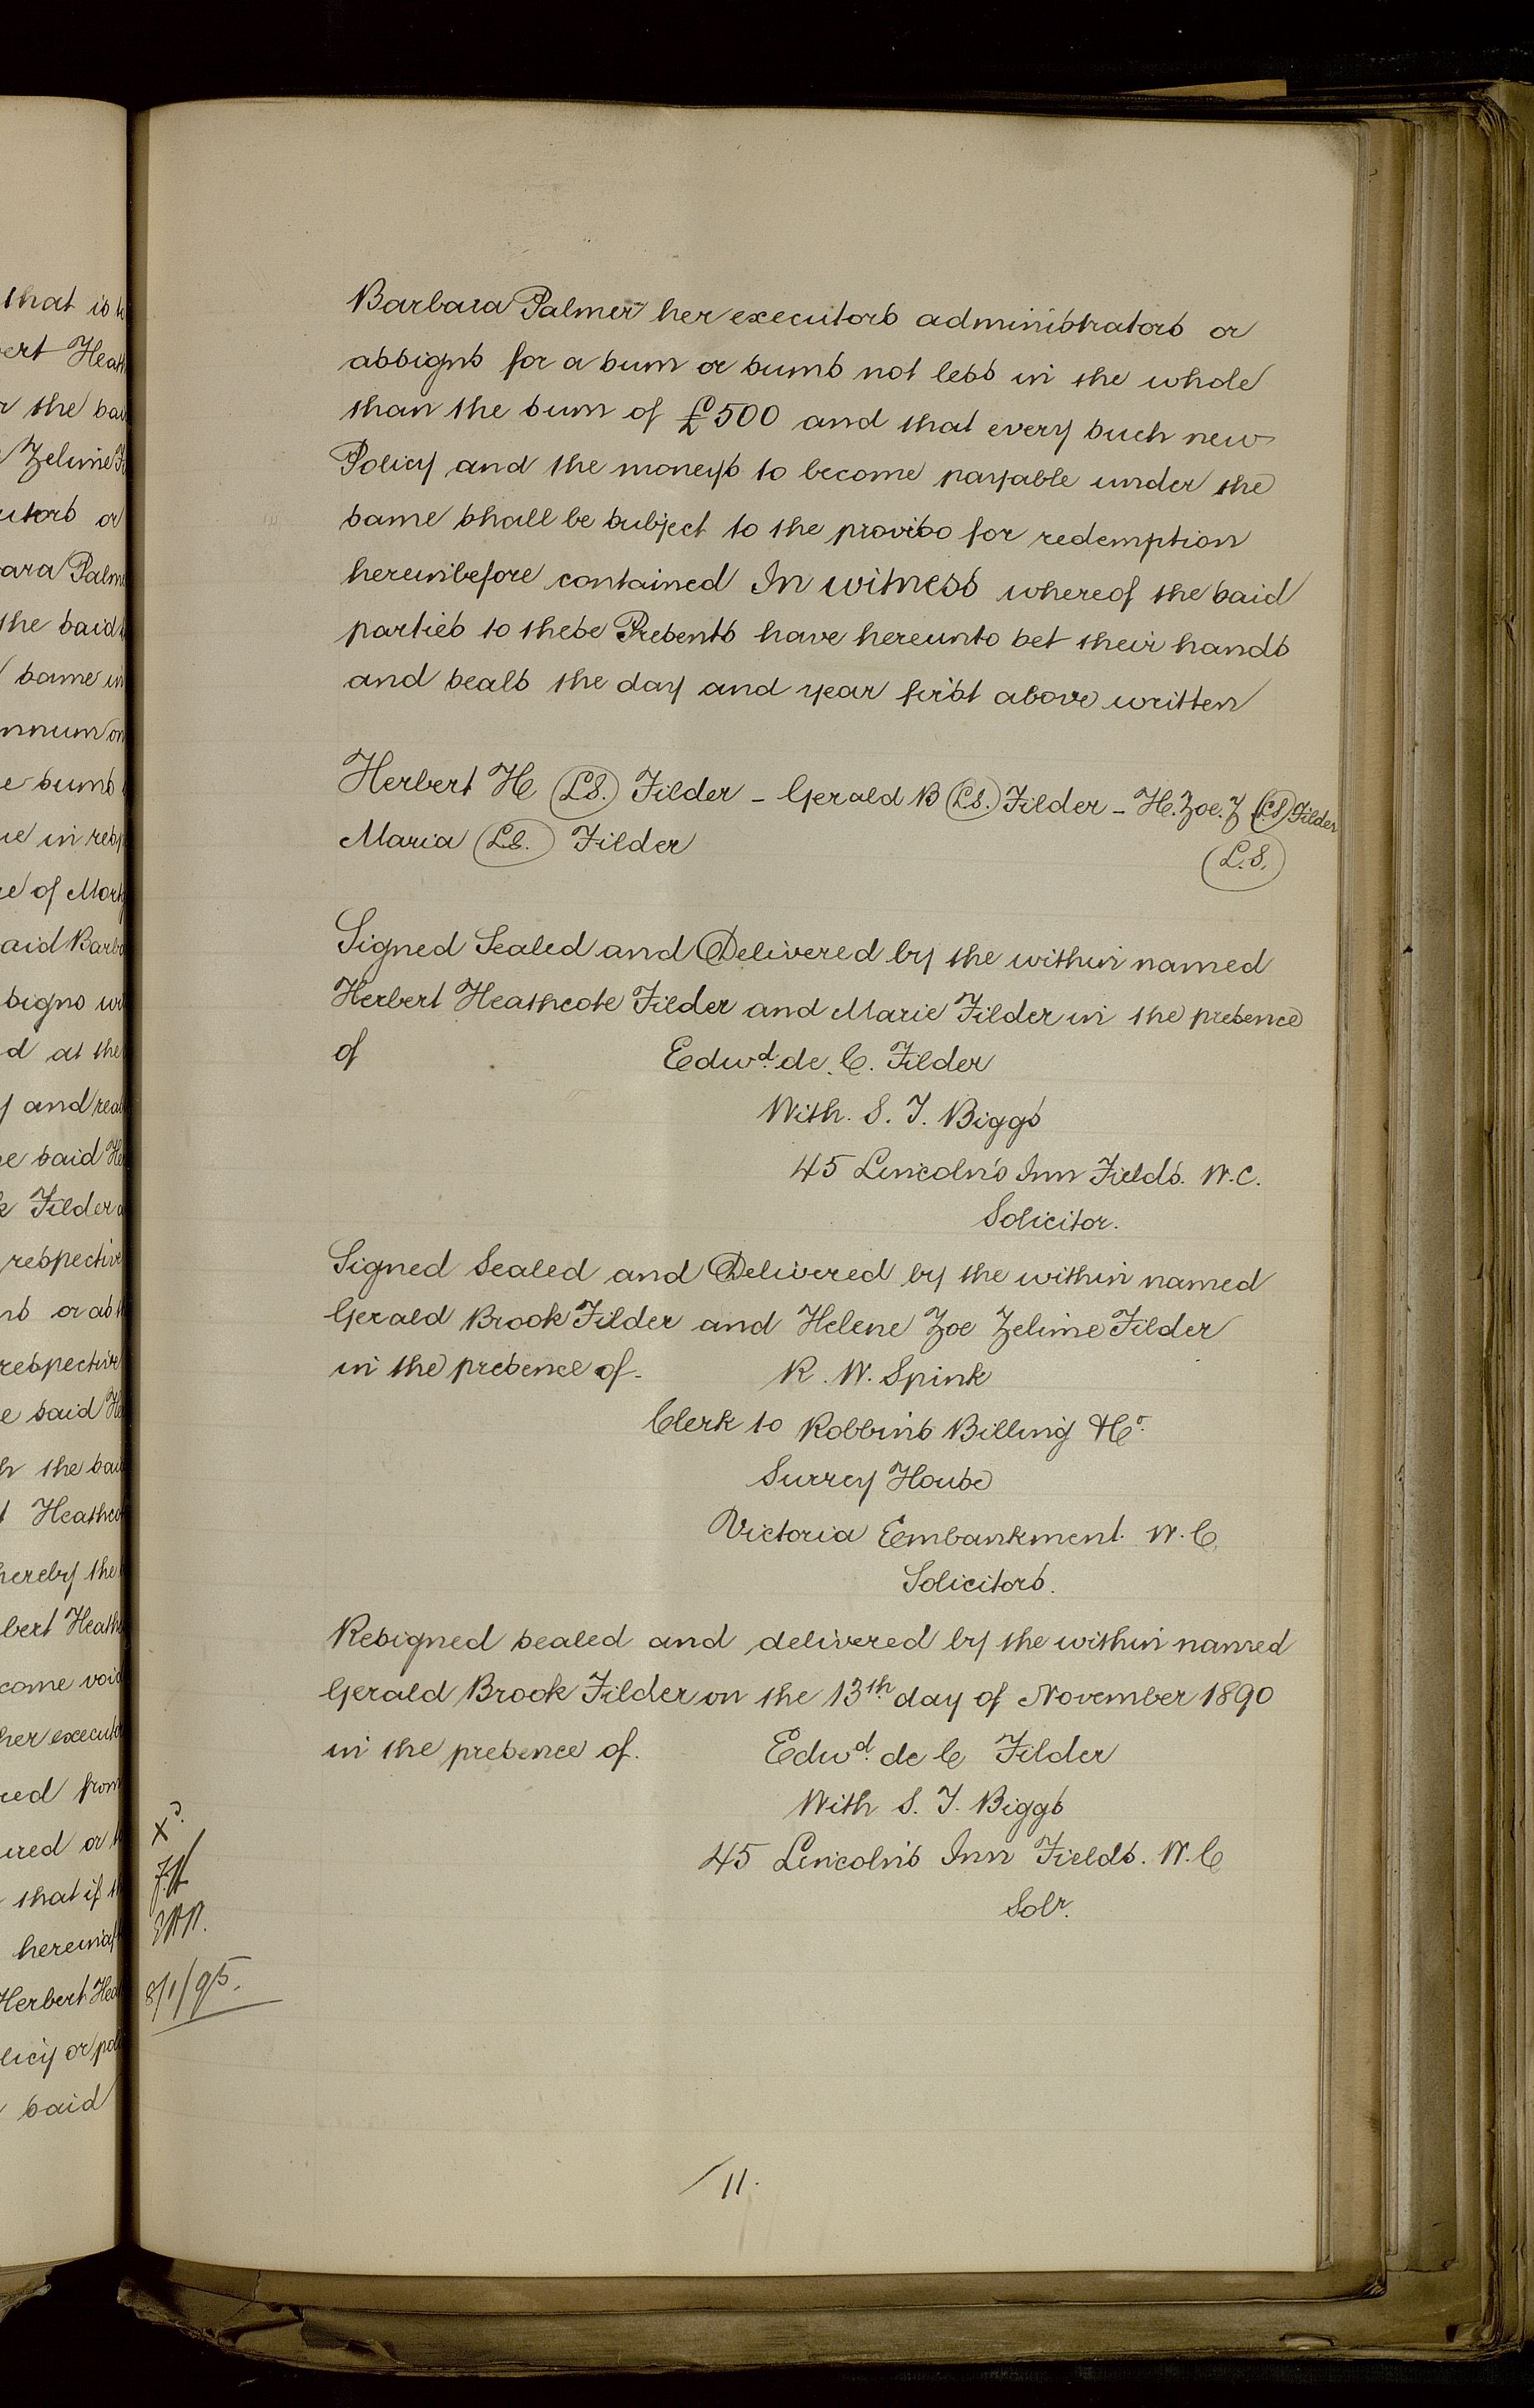 Barbara Palmer her executors administrators or
assigns for a sum or sums not less in the whole
than the sum of £500 and that every such new
Policy and the moneys to become payable under the
same shall be subject to the proviso for redemption
hereinbefore contained In witness whereof the said
parties to these Presents have hereunto set their hands
and seals the day and year first above written
Herbert H (L.S.) Filder - Gerald B (L.S.) Filder - H. Zoe. Z (L.S) Filder
Maria (L.S.) Filder (L.S.)
Signed Sealed and Delivered by the within named
Herbert Heathcote Filder and Marie Filder in the presence
of Edwd. de. C. Filder
With. S. J. Biggs
45 Lincoln's Inn Fields. W.C.
Solicitor.
Signed Sealed and Delivered by the within named
Gerald Brook Filder and Helene Zoe Zelime Filder
in the presence of - R. W. Spink
Clerk to Robbins Billing & Co.
Surrey House
Victoria Embankment. W.C.
Solicitors.
Resigned sealed and delivered by the within named
Gerald Brook Filder on the 13th day of November 1890
in the presence of. Edwd. de C Filder
With S. J. Biggs
45 Lincoln's Inn Fields. W.C
Solr.
Xd.
8/1/95.
11.
that is to
the said
Zelime
or
the said
same in
sums
in
of
at the
and
said
Filder
said
the
Heathco
hereby the
come void
her
from
or
that if
said